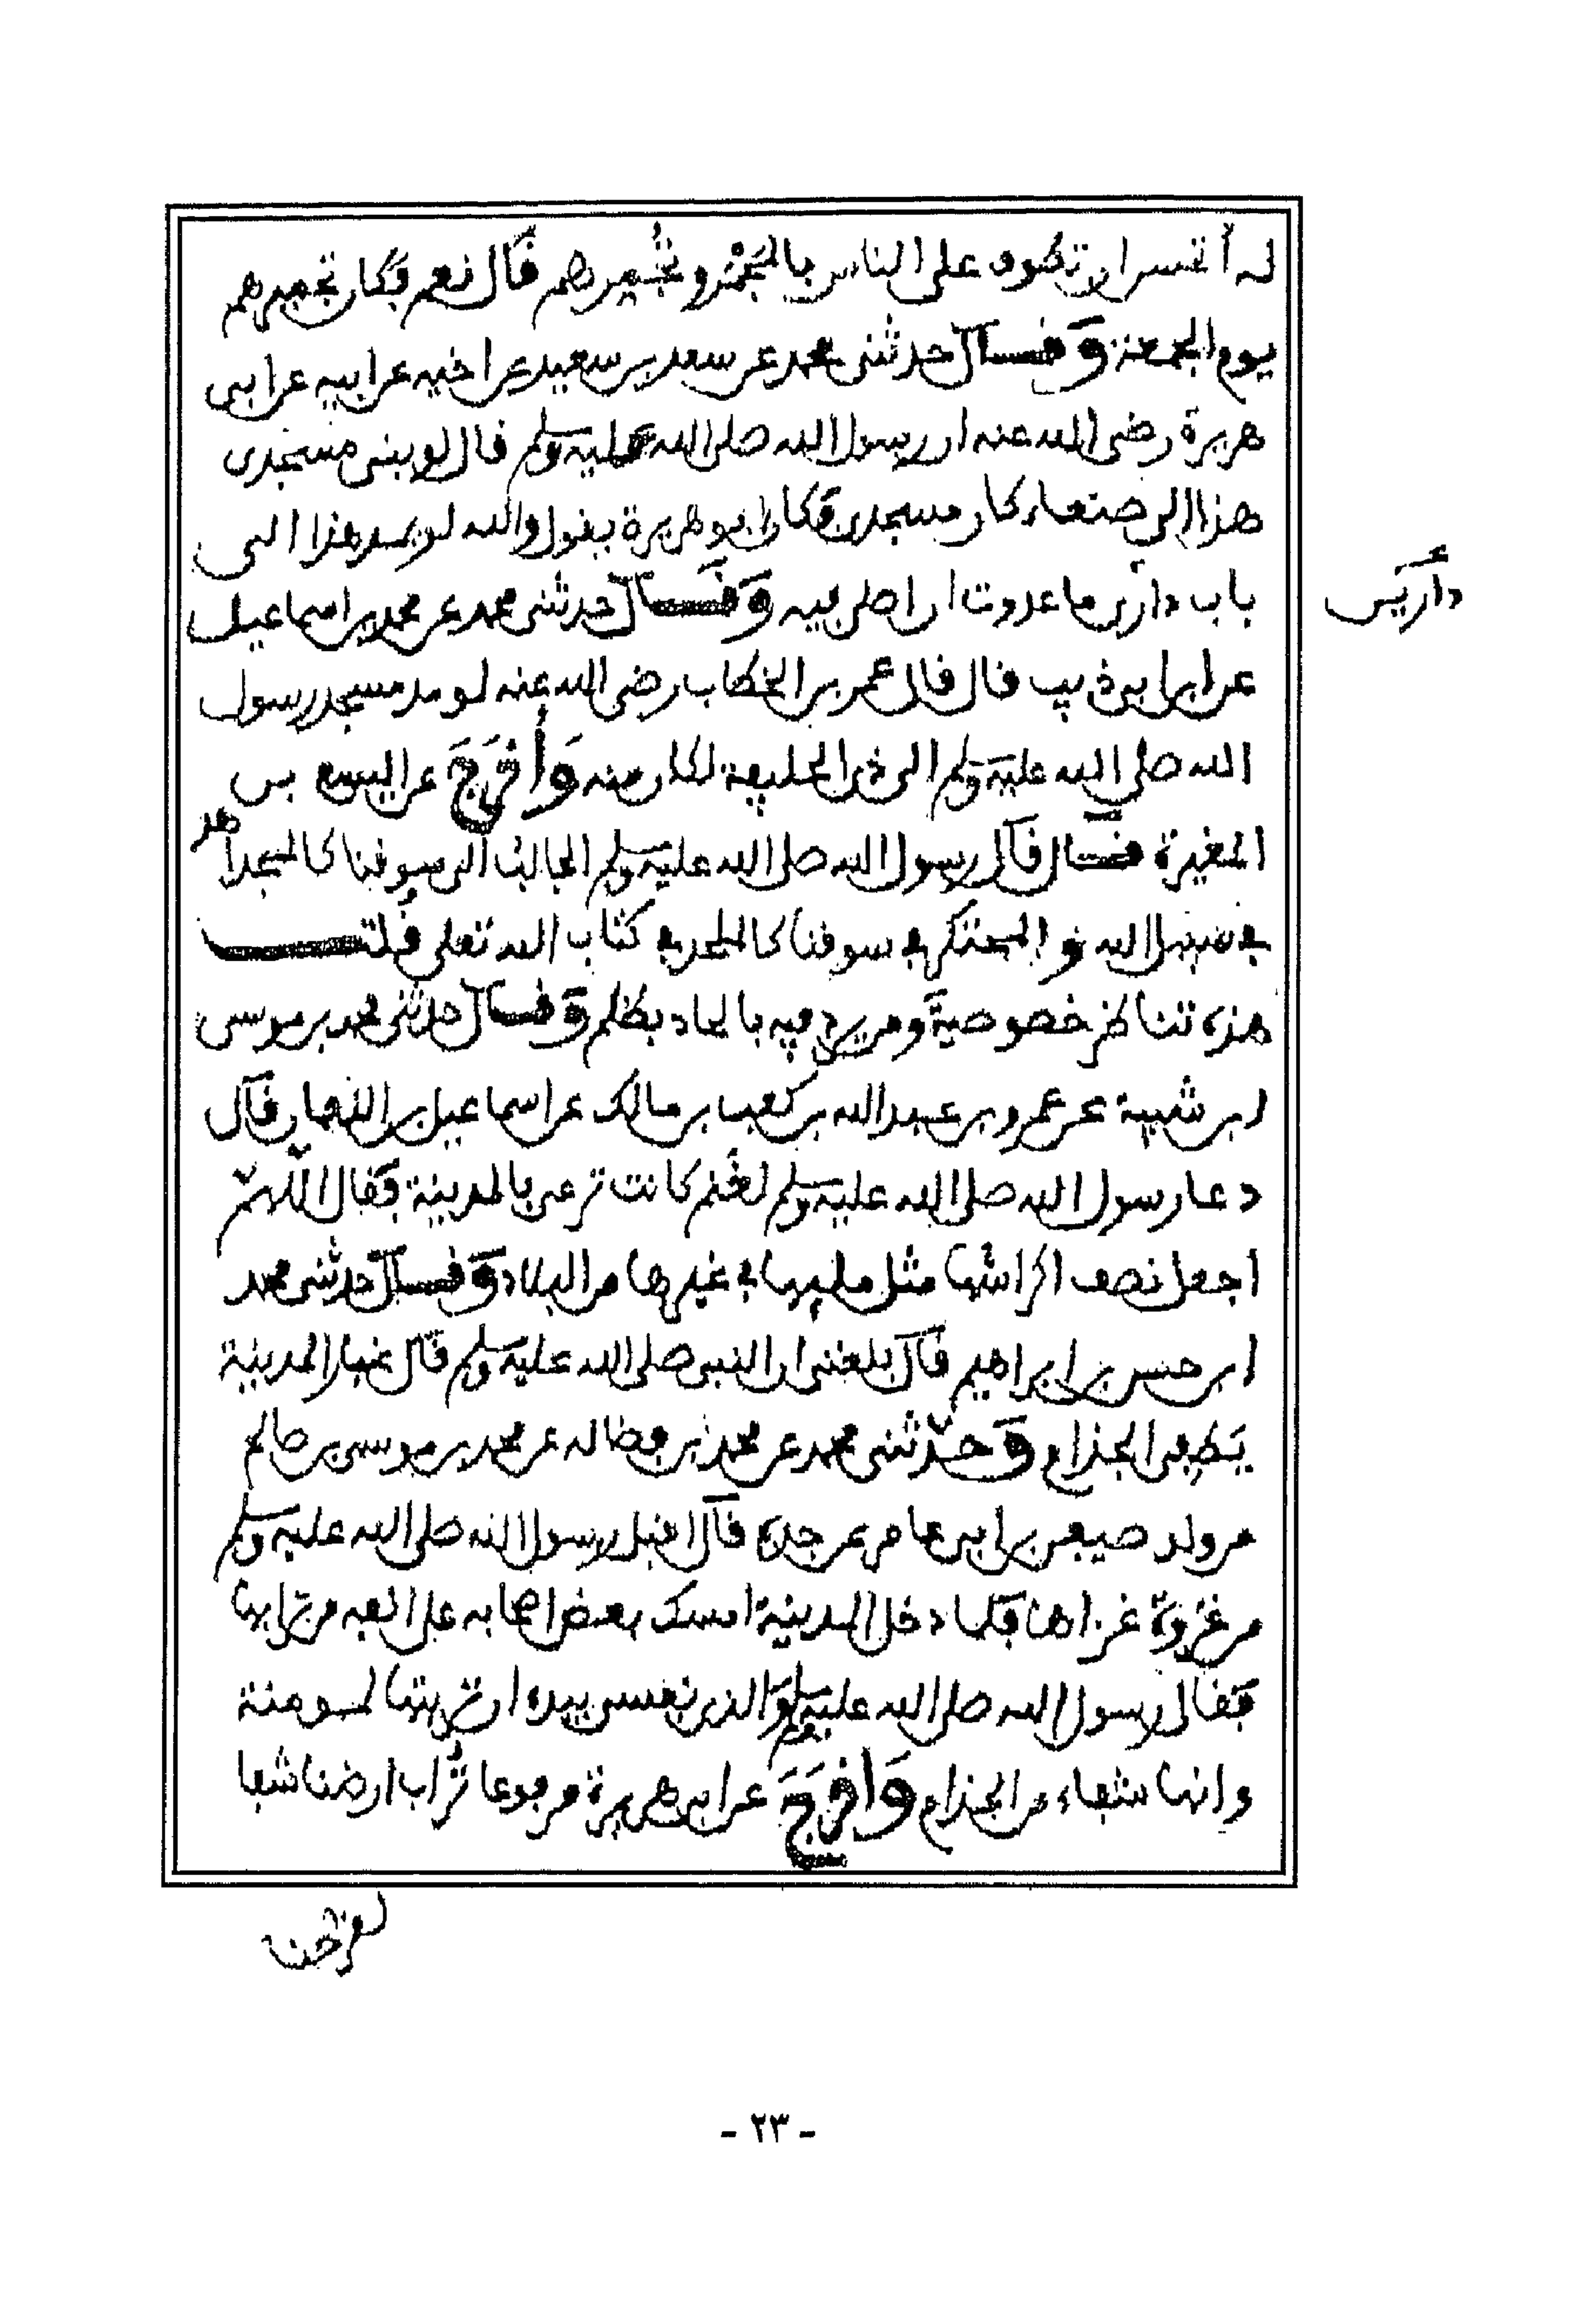 له أتحسن ان تطوف على الناس بالمجمر وتجميرهم قال نعم فكان تجميرهم
يوم الجمعة وقال حدثنى محمد عن سعد بن سعيد عن اخيه عن ابيه عن ابى
هريرة رضى الله عنه ان رسول الله صلى الله عليه وسلم قال لو بنى مسجدى
هذا الى صنعاء كان مسجدى فكان ابو هريرة يقول والله لو مد هذا الى
باب دارى ما عدوت ان اصلى فيه وقال حدثنى محمد عن محمد بن اسماعيل
دارىس
عن ابن ابى ذيب قال قال عمر بن الخطاب رضى الله عنه لو مد مسجد رسول
الله صلى الله عليه وسلم الى ذى الحليفة لكان منه وَأخْرَجَ عن اليسع بن
المغيرة قال قال رسول الله صلى الله عليه وسلم الجالب الى سوقنا كالمجاهد
فى سبيل الله والمحتكر فى سوقنا كالملحد فى كتاب الله تعلى قلت
هذه تناظر خصوصية ومن يرد فيه بالحاد بظلم وقال حدثنى محمد بن موسى
ابن شيبة عن عمرو بن عبد الله بن كعب بن مالك عن اسماعيل بن النعمان قال
دعا رسول الله صلى الله عليه وسلم لغنم كانت ترعى بالمدينة فقال اللهم
اجعل نصف اكراشها مثل مليها فى غيرها من البلاد وقال حدثنى محمد
ابن حسن بن ابراهيم قال بلغنى ان النبى صلى الله عليه وسلم قال غبار المدينة
يطفى الجذام وحدّثنى محمد عن محمد بن فضاله عن محمد بن موسى بن صالح
من ولد صيفى بن ابى عامر عن جده قال اقبل رسول الله صلى الله عليه وسلم
من غزوة غزاها فلما دخل المدينة امسك بعض اصحابه على انفه من ترابها
فقال رسول الله صلى الله عليه وسلم والذى نفسى بيده ان تربتها لمومنة
وانها شفاء من الجذام وَاخْرَجَ عن ابى هريرة مرفوعا تُراب ارضنا شفا
لقرحنا
- ٢٣ -